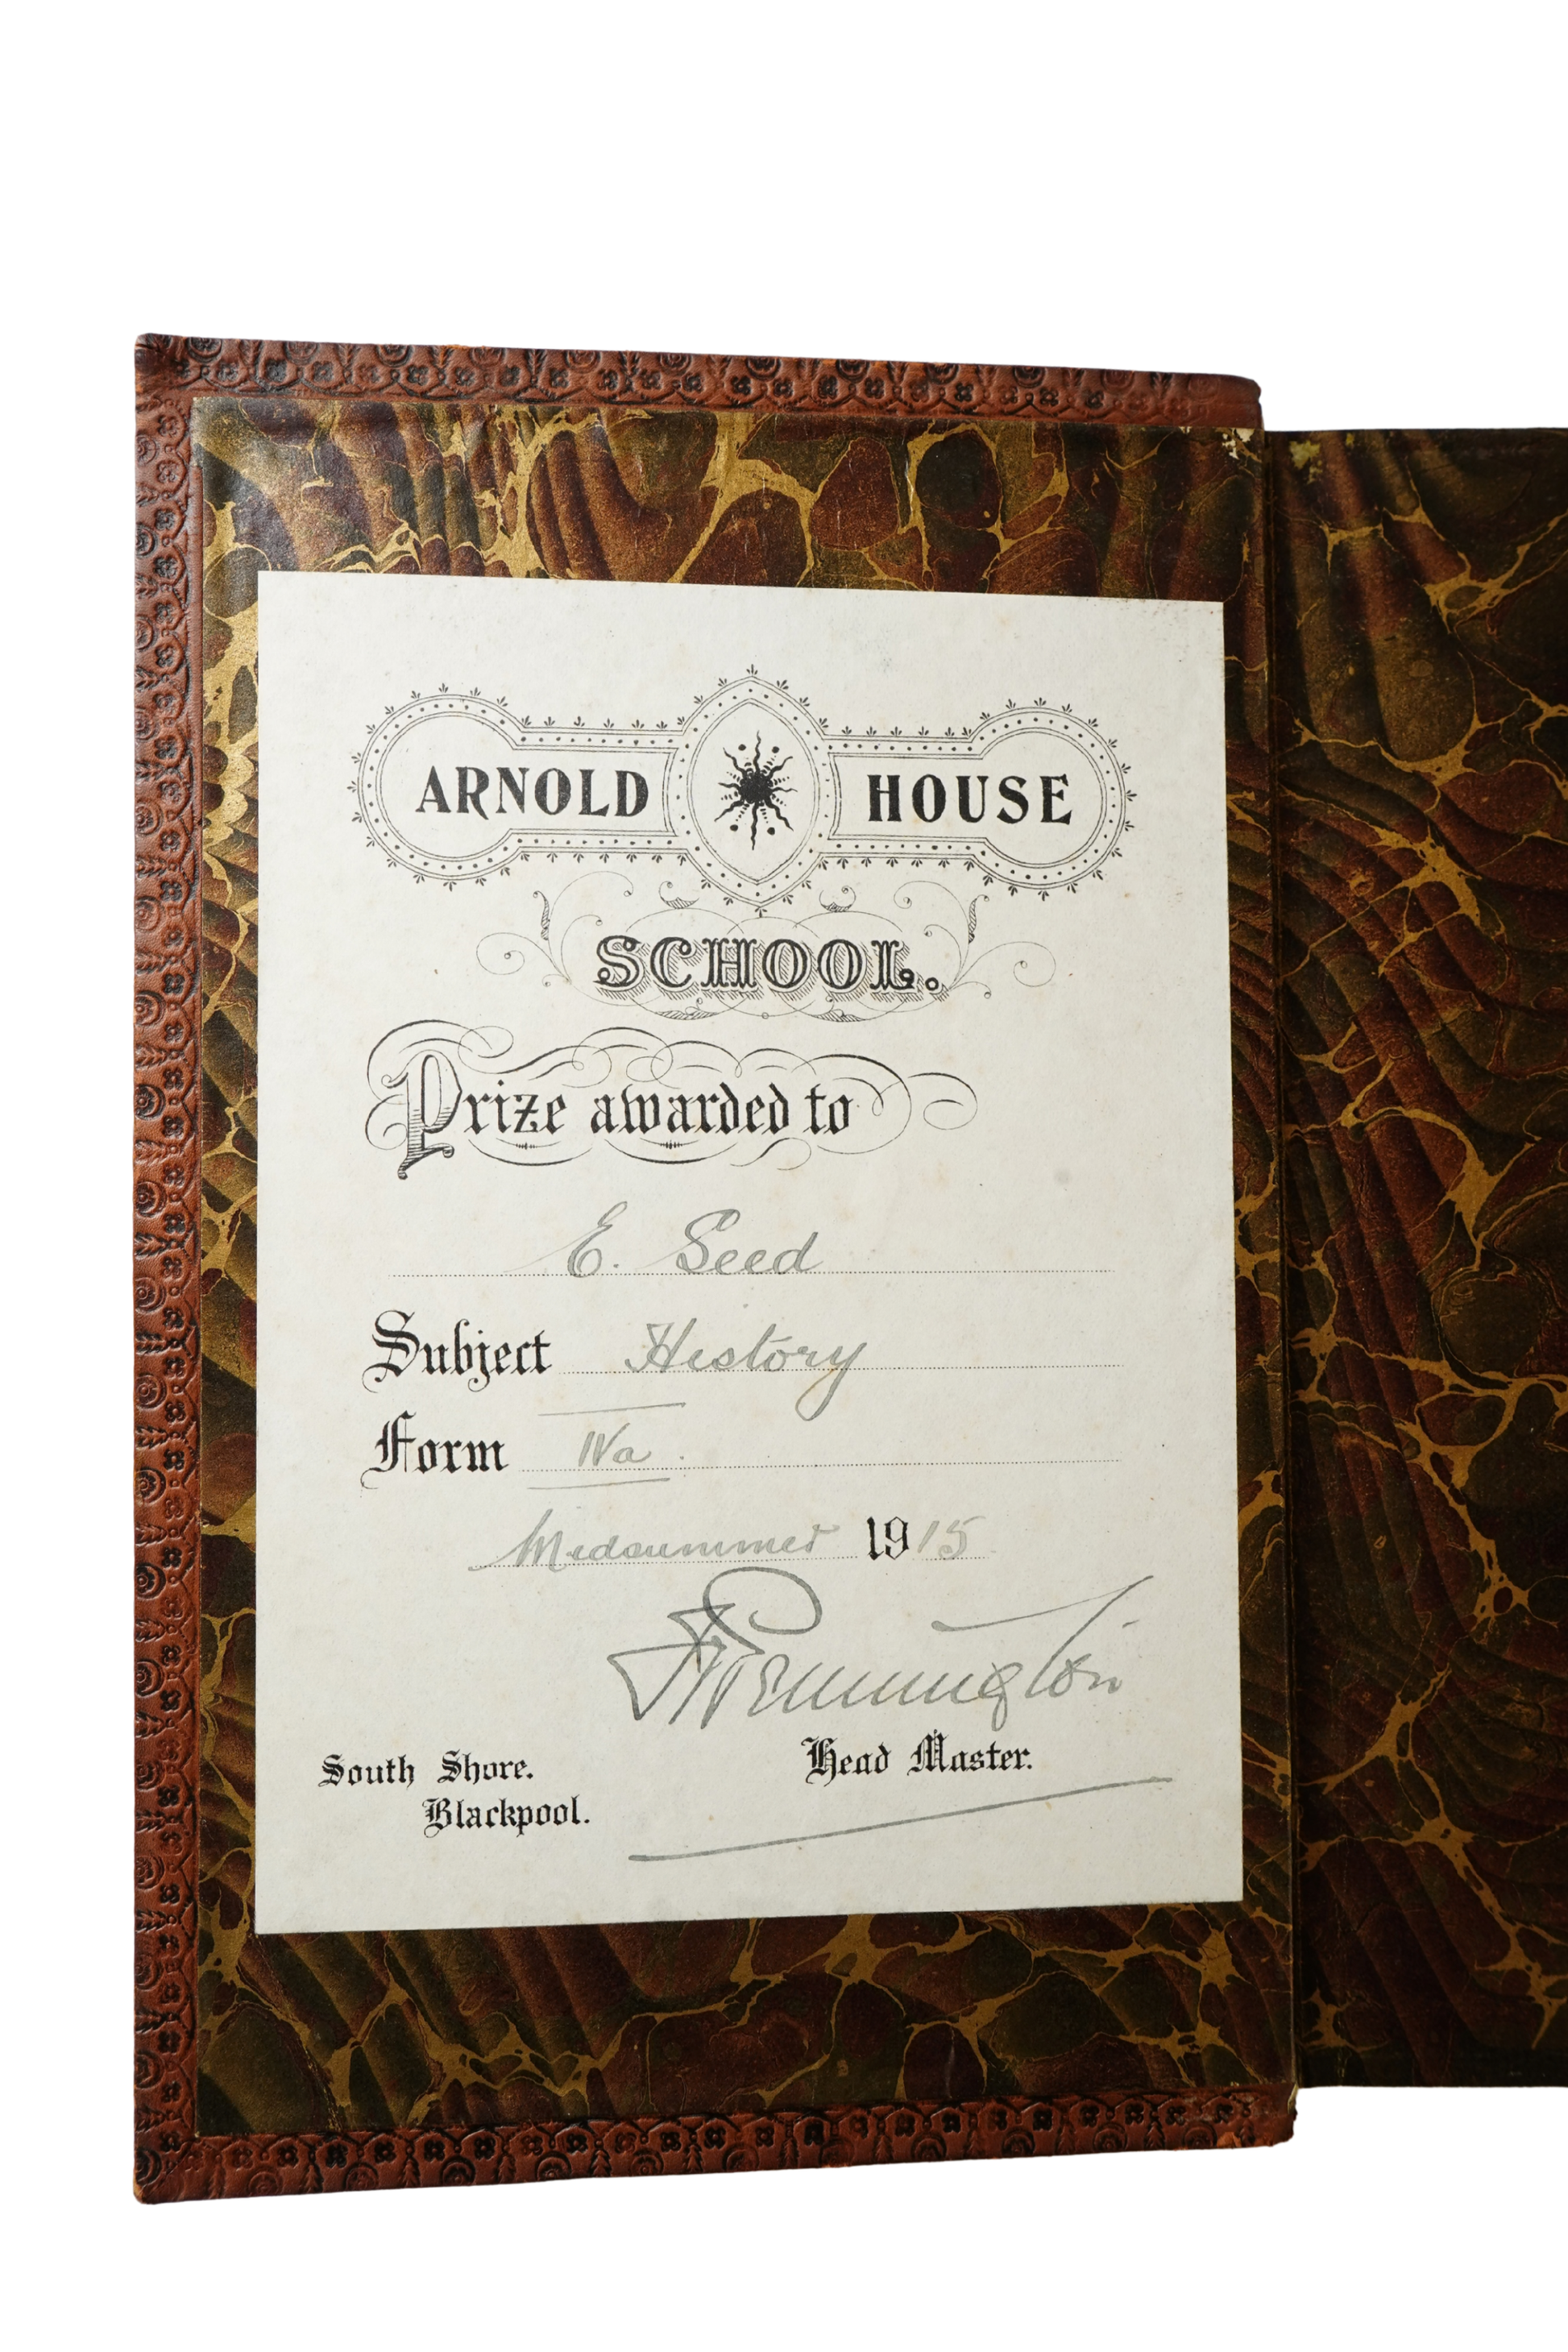 ARNOLD HOUSE
SCHOOL.
Prize awarded to
E. Seed
Subject History
Form IVa.
Midsummer 1915
Pennington
Head Master.
South Shore.
Blackpool.